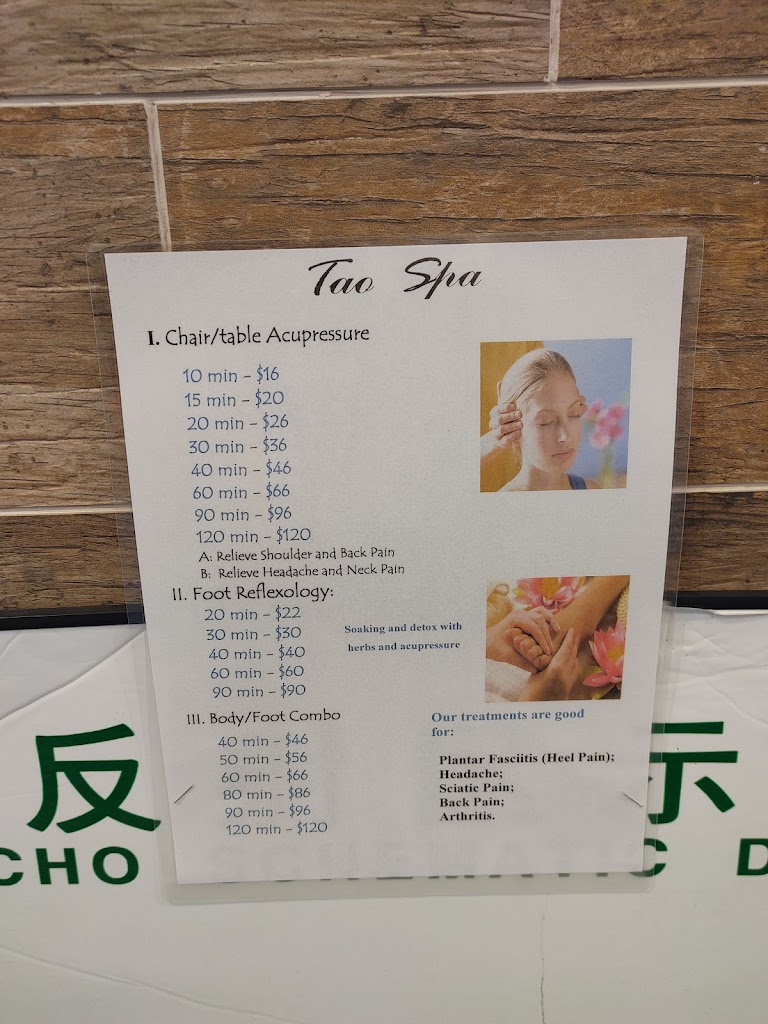 Tao Spa
I. Chair/table Acupressure
10 min - $16
15 min - $20
20 min - $26
30 min - $36
40 min - $46
60 min - $66
90 min - $96
120 min - $120
A: Relieve Shoulder and Back Pain
B: Relieve Headache and Neck Pain
II. Foot Reflexology:
20 min - $22
30 min - $30
40 min - $40
60 min - $60
90 min - $90
Soaking and detox with
herbs and acupressure
III. Body/Foot Combo
40 min - $46
50 min - $56
60 min - $66
80 min - $86
90 min - $96
120 min - $120
Our treatments are good
for:
Plantar Fasciitis (Heel Pain);
Headache;
Sciatic Pain;
Back Pain;
Arthritis.
反 示
CHO SCHEMATIC D